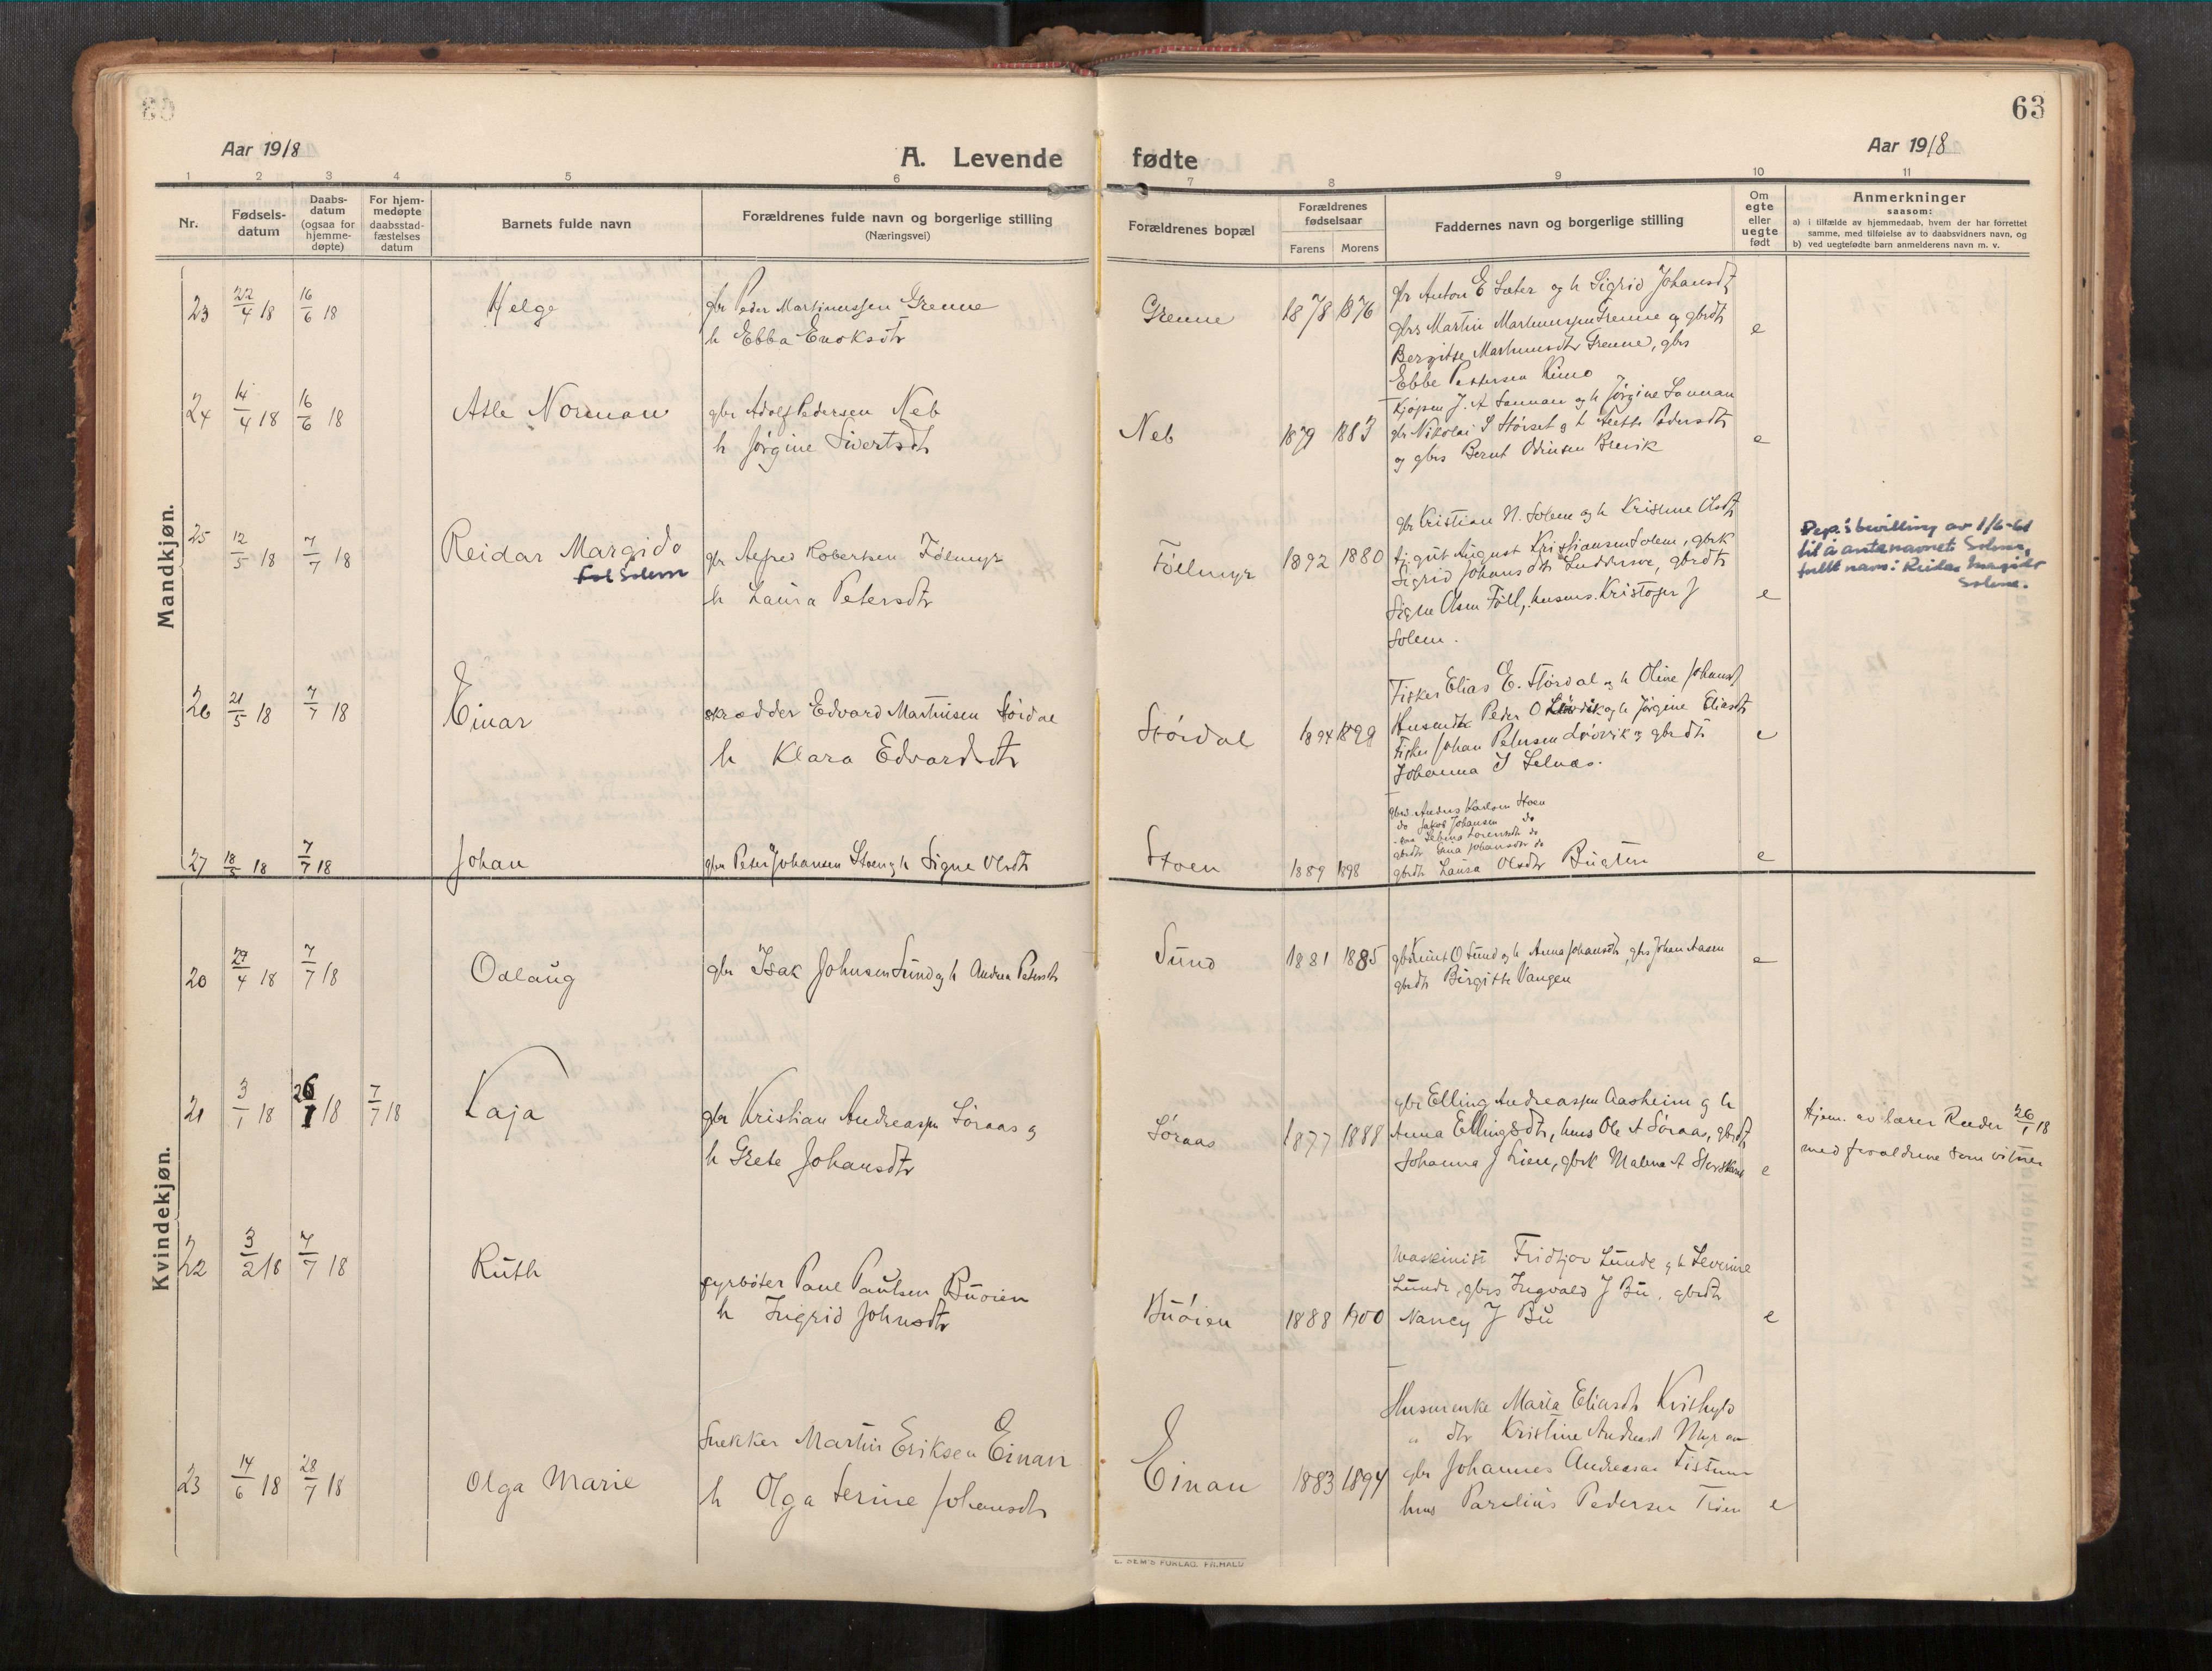 63
Aar 1918
A. Levende fødte
Aar 1918
1 2 3 4 5 6 7 8 9 10 11
Nr.
Fødsels-
datum
Daabs-
datum
(ogsaa for
hjemme-
døpte)
For hjem-
medøpte
daabsstad-
fæstelses
datum
Barnets fulde navn
Forældrenes fulde navn og borgerlige stilling
(Næringsvei)
Forældrenes bopæl
Forældrenes
fødselsaar
Farens Morens
Faddernes navn og borgerlige stilling
Om
egte
eller
uegte
født
Anmerkninger
saasom:
a) i tilfælde av hjemmedaab, hvem der har forrettet
samme, med tilføielse av to daabsvidners navn, og
b) ved uegtefødte barn anmelderens navn m. v.
Mandkjøn.
23 22/4 18 16/6 18 Helge
gbr Peder Martinussen Grenne
h Ebba Enoksdtr
Grenne 1878 1876
gbr Anton E Sæter og h Sigrid Johansdt
gbrs Martin Martinussen Grenne og gbrdt
Bergitte Martinusdtr Grenne, gbrs
Ebbe Pettersen Kimo
e
24 14/4 18 16/6 18 Atle Norman
gbr Adolf Pedersen Neb
h Jørgine Sivertsdtr
Neb 1879 1883
Kjøpm J. A Sannan og h Jørgine Sannan
gbr Nikolai S Hörset og h Pedersdtr
og gbrs Bernt Odinsen Brevik
e
25 12/5 18 7/7 18 Reidar Margido
Solem
gbr Alfred Robertsen Fölmyr
h Laura Petersdtr
Föllmyr 1892 1880
gbr Kristian N. Solem og h Kristine Olsdt
August Kristiansen Solem, gbrk
Sigrid Johansdtr, gbrdt
Signe Olsen Föll, husms. Kristofer J
Solem.
e
Dep.s bevilling av 1/6-61
til å anta navnet Solem,
fullt navn: Reidar Margido
Solem.
26 21/5 18 7/7 18 Einar
skrædder Edvard Martinsen Stördal
h Klara Edvardsdtr
Stördal 1894 1899
Fisker Elias E. Stördal og h Oline Johansd
Peder O og h Jörgine Eliasdt
Fisker Johan Petersen Lövvik og gbrdt
Johanna I Selnæs.
e
27 18/5 18 7/7 18 Johan
gbr Peter Johansen Stoen og h Signe Olsdt
Stoen 1889 1898
gbrs Anders Karlsen Stoen
do Jakob Johansen do
Lorensdt do
gbrdt Johansdtr do
gbrdt Laura Olsdtr Bugten
e
Kvindekjøn.
20 29/4 18 7/7 18 Odlaug
gbr Isak Johnsen Sund og h Andrea Petersdt
Sund 1881 1885
gbr Knut O Sund og h Anna Johansdt, gbrs Johan Aasen
gbrdt Birgitte Vangen
e
21 3/1 18 26/1 18 7/7 18 Kaja
gbr Kristian Andreassen Söraas og
h Grete Johansdtr
Söraas 1877 1888
gbr Elling Andreassen Aasheim og h
Anna Ellingsdt, hms Ole A Söraas, gbrdt
Johanna J Lien, gbrk Malena A
e
Hjem. av lærer Reeder 26/1 18
med foreldrene som vitner
22 3/2 18 7/7 18 Ruth
fyrböter Paul Paulsen Buöien
h Ingrid Johnsdtr
Buöien 1888 1900
Maskinist Fridtjov Lunde og h Severine
Lunde, gbrs Ingvald J Bu, gbrdt
Nancy J Bu
e
23 14/6 18 28/7 18 Olga Marie
Snekker Martin Eriksen Einan
h Olga Serine Johansdtr
Einan 1883 1894
Husmenke Maria Eliasdt Kvithyld
" dtr Kristine Andreasd Myran
gbr Johannes Andreasen
hms Parelius Pedersen Tröen
e